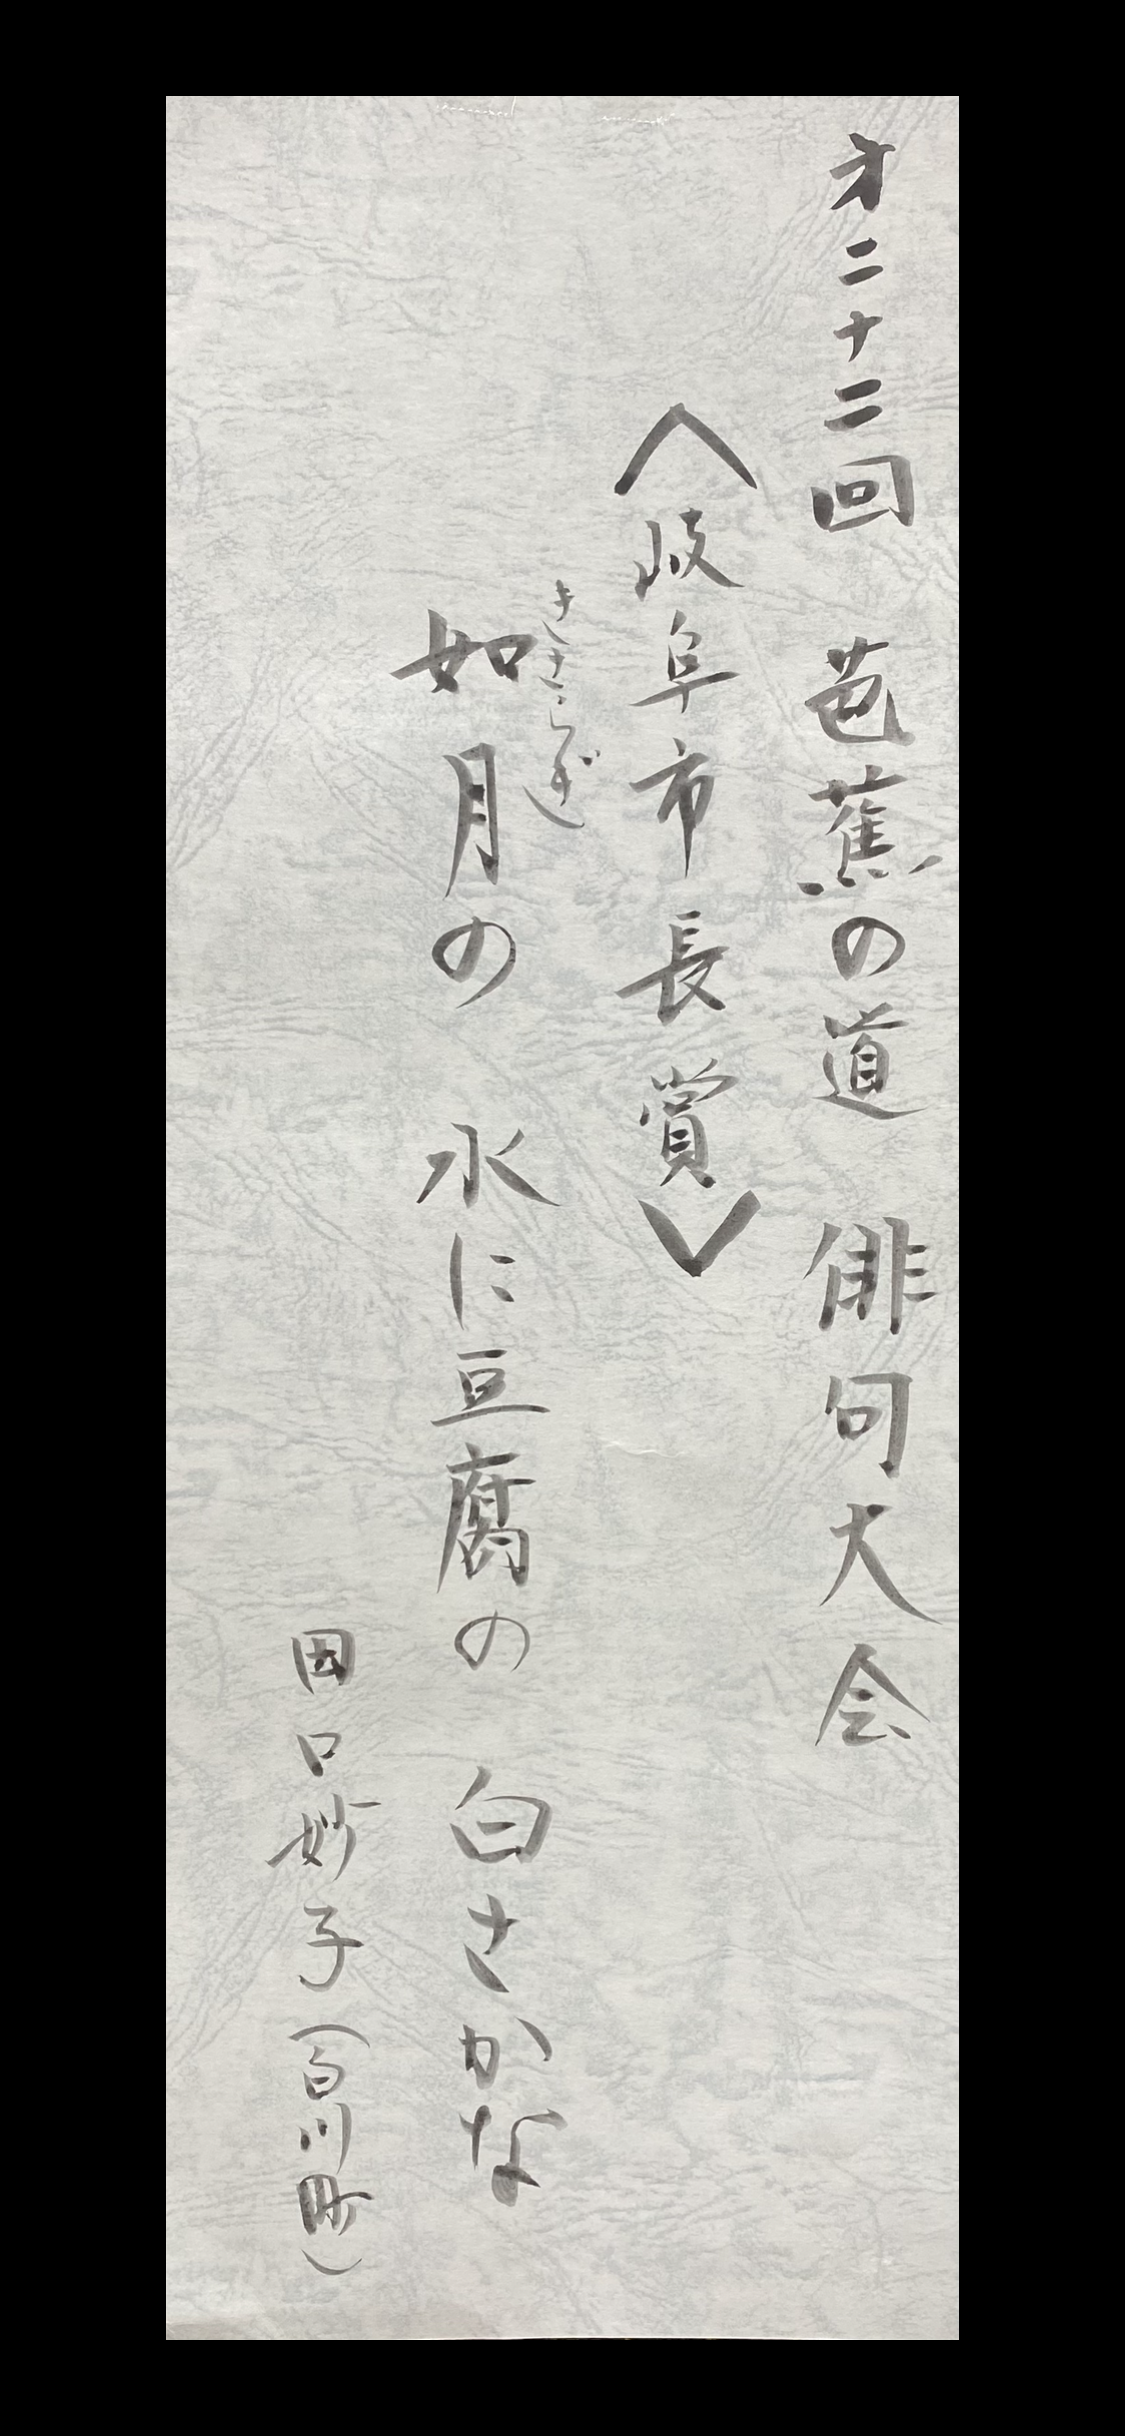 才二十二回 芭蕉の道 俳句大会
〈岐阜市長賞〉
きさらぎ
如月の 水に豆腐の 白さかな
田口妙子(白川町)